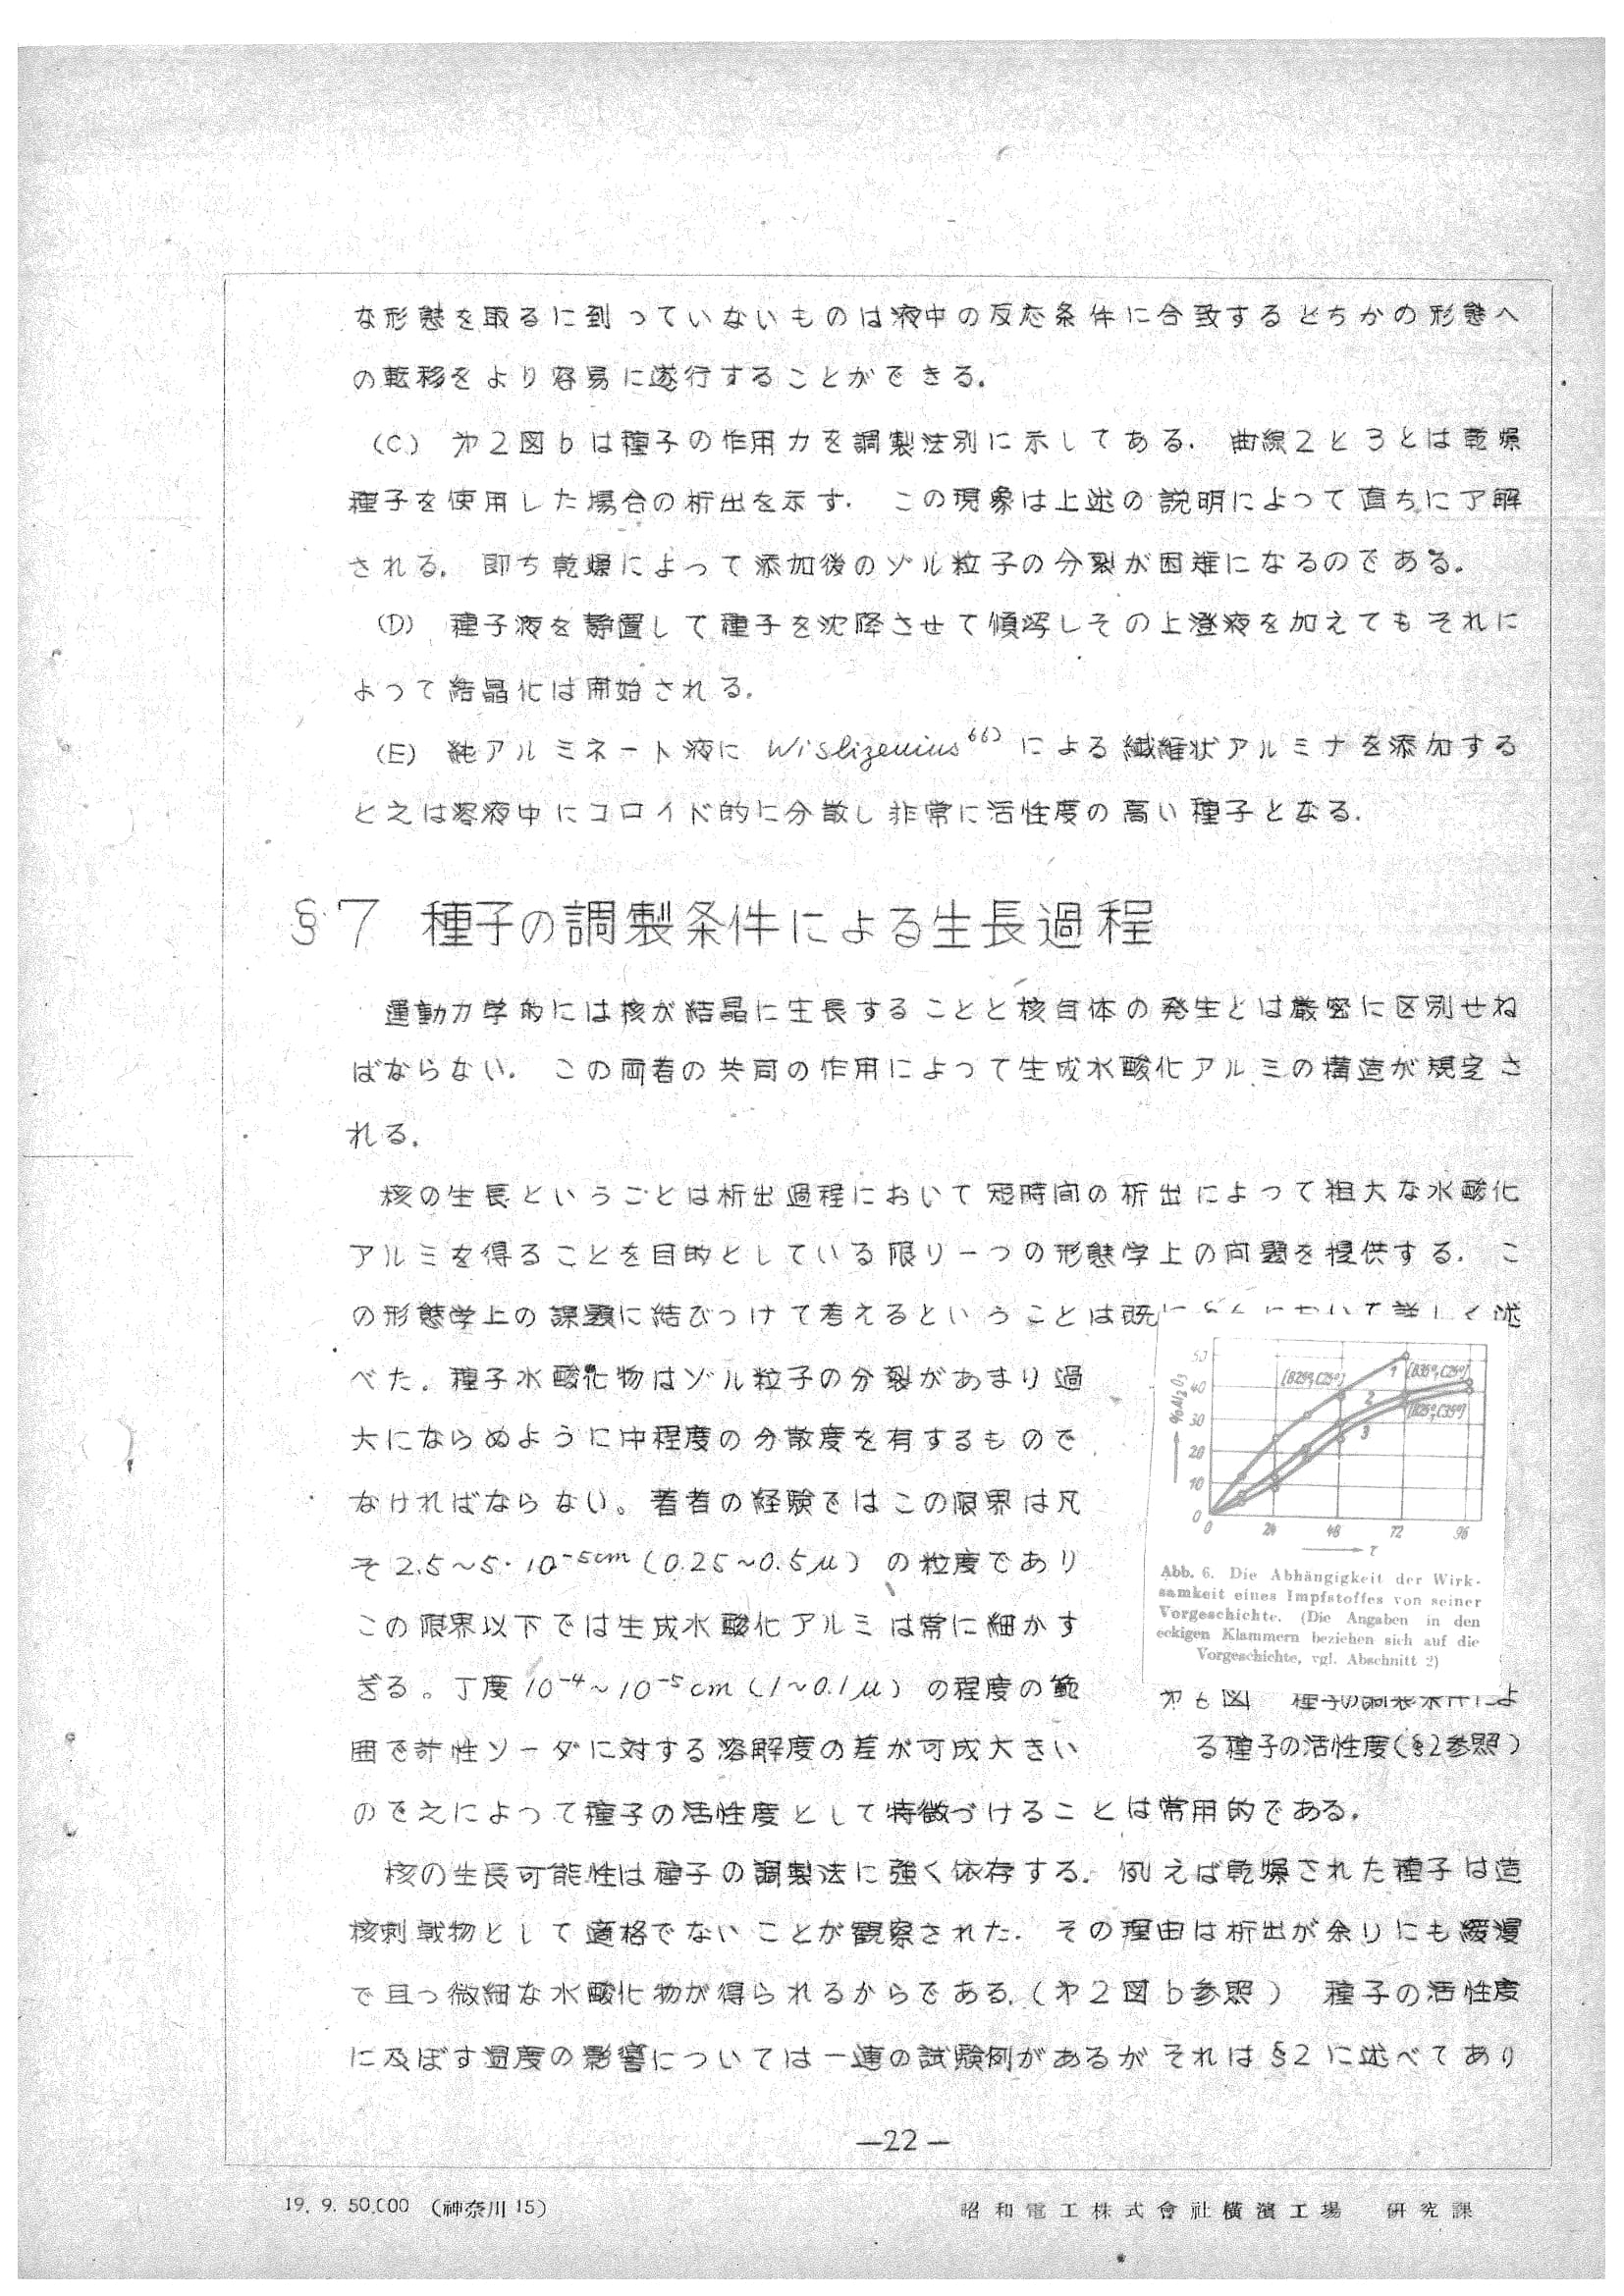 な形態を取るに到っていないものは液中の反応条件に合致するどちかの形態へ
の転移をより容易に遂行することができる.
(C) 才2図bは種子の作用力を調製法別に示してある. 曲線2と3とは乾燥
種子を使用した場合の析出を示す. この現象は上述の説明によって直ちに了解
される. 即ち乾燥によって添加後のゾル粒子の分裂が困難になるのである.
(D) 種子液を静置して種子を沈降させて傾瀉しその上澄液を加えてもそれに
よって結晶化は開始される.
(E) 純アルミネート液に Wislizenius⁶⁶⁾ による繊維状アルミナを添加する
と之は溶液中にコロイド的に分散し非常に活性度の高い種子となる.
§7 種子の調製条件による生長過程
運動力学的には核が結晶に生長することと核自体の発生とは厳密に区別せね
ばならない. この両者の共同の作用によって生成水酸化アルミの構造が規定さ
れる.
核の生長ということは析出過程において短時間の析出によって粗大な水酸化
アルミを得ることを目的としている限り一つの形態学上の問題を提供する. こ
の形態学上の課題に結びつけて考えるということは既に において詳しく述
べた. 種子水酸化物はゾル粒子の分裂があまり過
大にならぬように中程度の分散度を有するもので
なければならない。著者の経験ではこの限界は凡
そ 2.5~5·10⁻⁵cm (0.25~0.5μ) の粒度であり
この限界以下では生成水酸化アルミは常に細かす
ぎる。丁度 10⁻⁴~10⁻⁵cm (1~0.1μ) の程度の範
囲で苛性ソーダに対する溶解度の差が可成大きい
ので之によって種子の活性度として特徴づけることは常用的である.
50
40
30
20
10
0
% Al₂O₃
[B25°, C25°]
1 [B35°, C25°]
2
[B25°, C35°]
3
0 24 48 72 96
τ
Abb. 6. Die Abhängigkeit der Wirk-
samkeit eines Impfstoffes von seiner
Vorgeschichte. (Die Angaben in den
eckigen Klammern beziehen sich auf die
Vorgeschichte, vgl. Abschnitt 2)
才6図 種子の調製条件によ
る種子の活性度(§2参照)
核の生長可能性は種子の調製法に強く依存する. 例えば乾燥された種子は造
核刺戟物として適格でないことが観察された. その理由は析出が余りにも緩漫
で且つ微細な水酸化物が得られるからである.(才2図b参照) 種子の活性度
に及ぼす温度の影響については一連の試験例があるがそれは§2に述べてあり
—22—
19. 9. 50,000 (神奈川 15)
昭和電工株式會社横濱工場 研究課